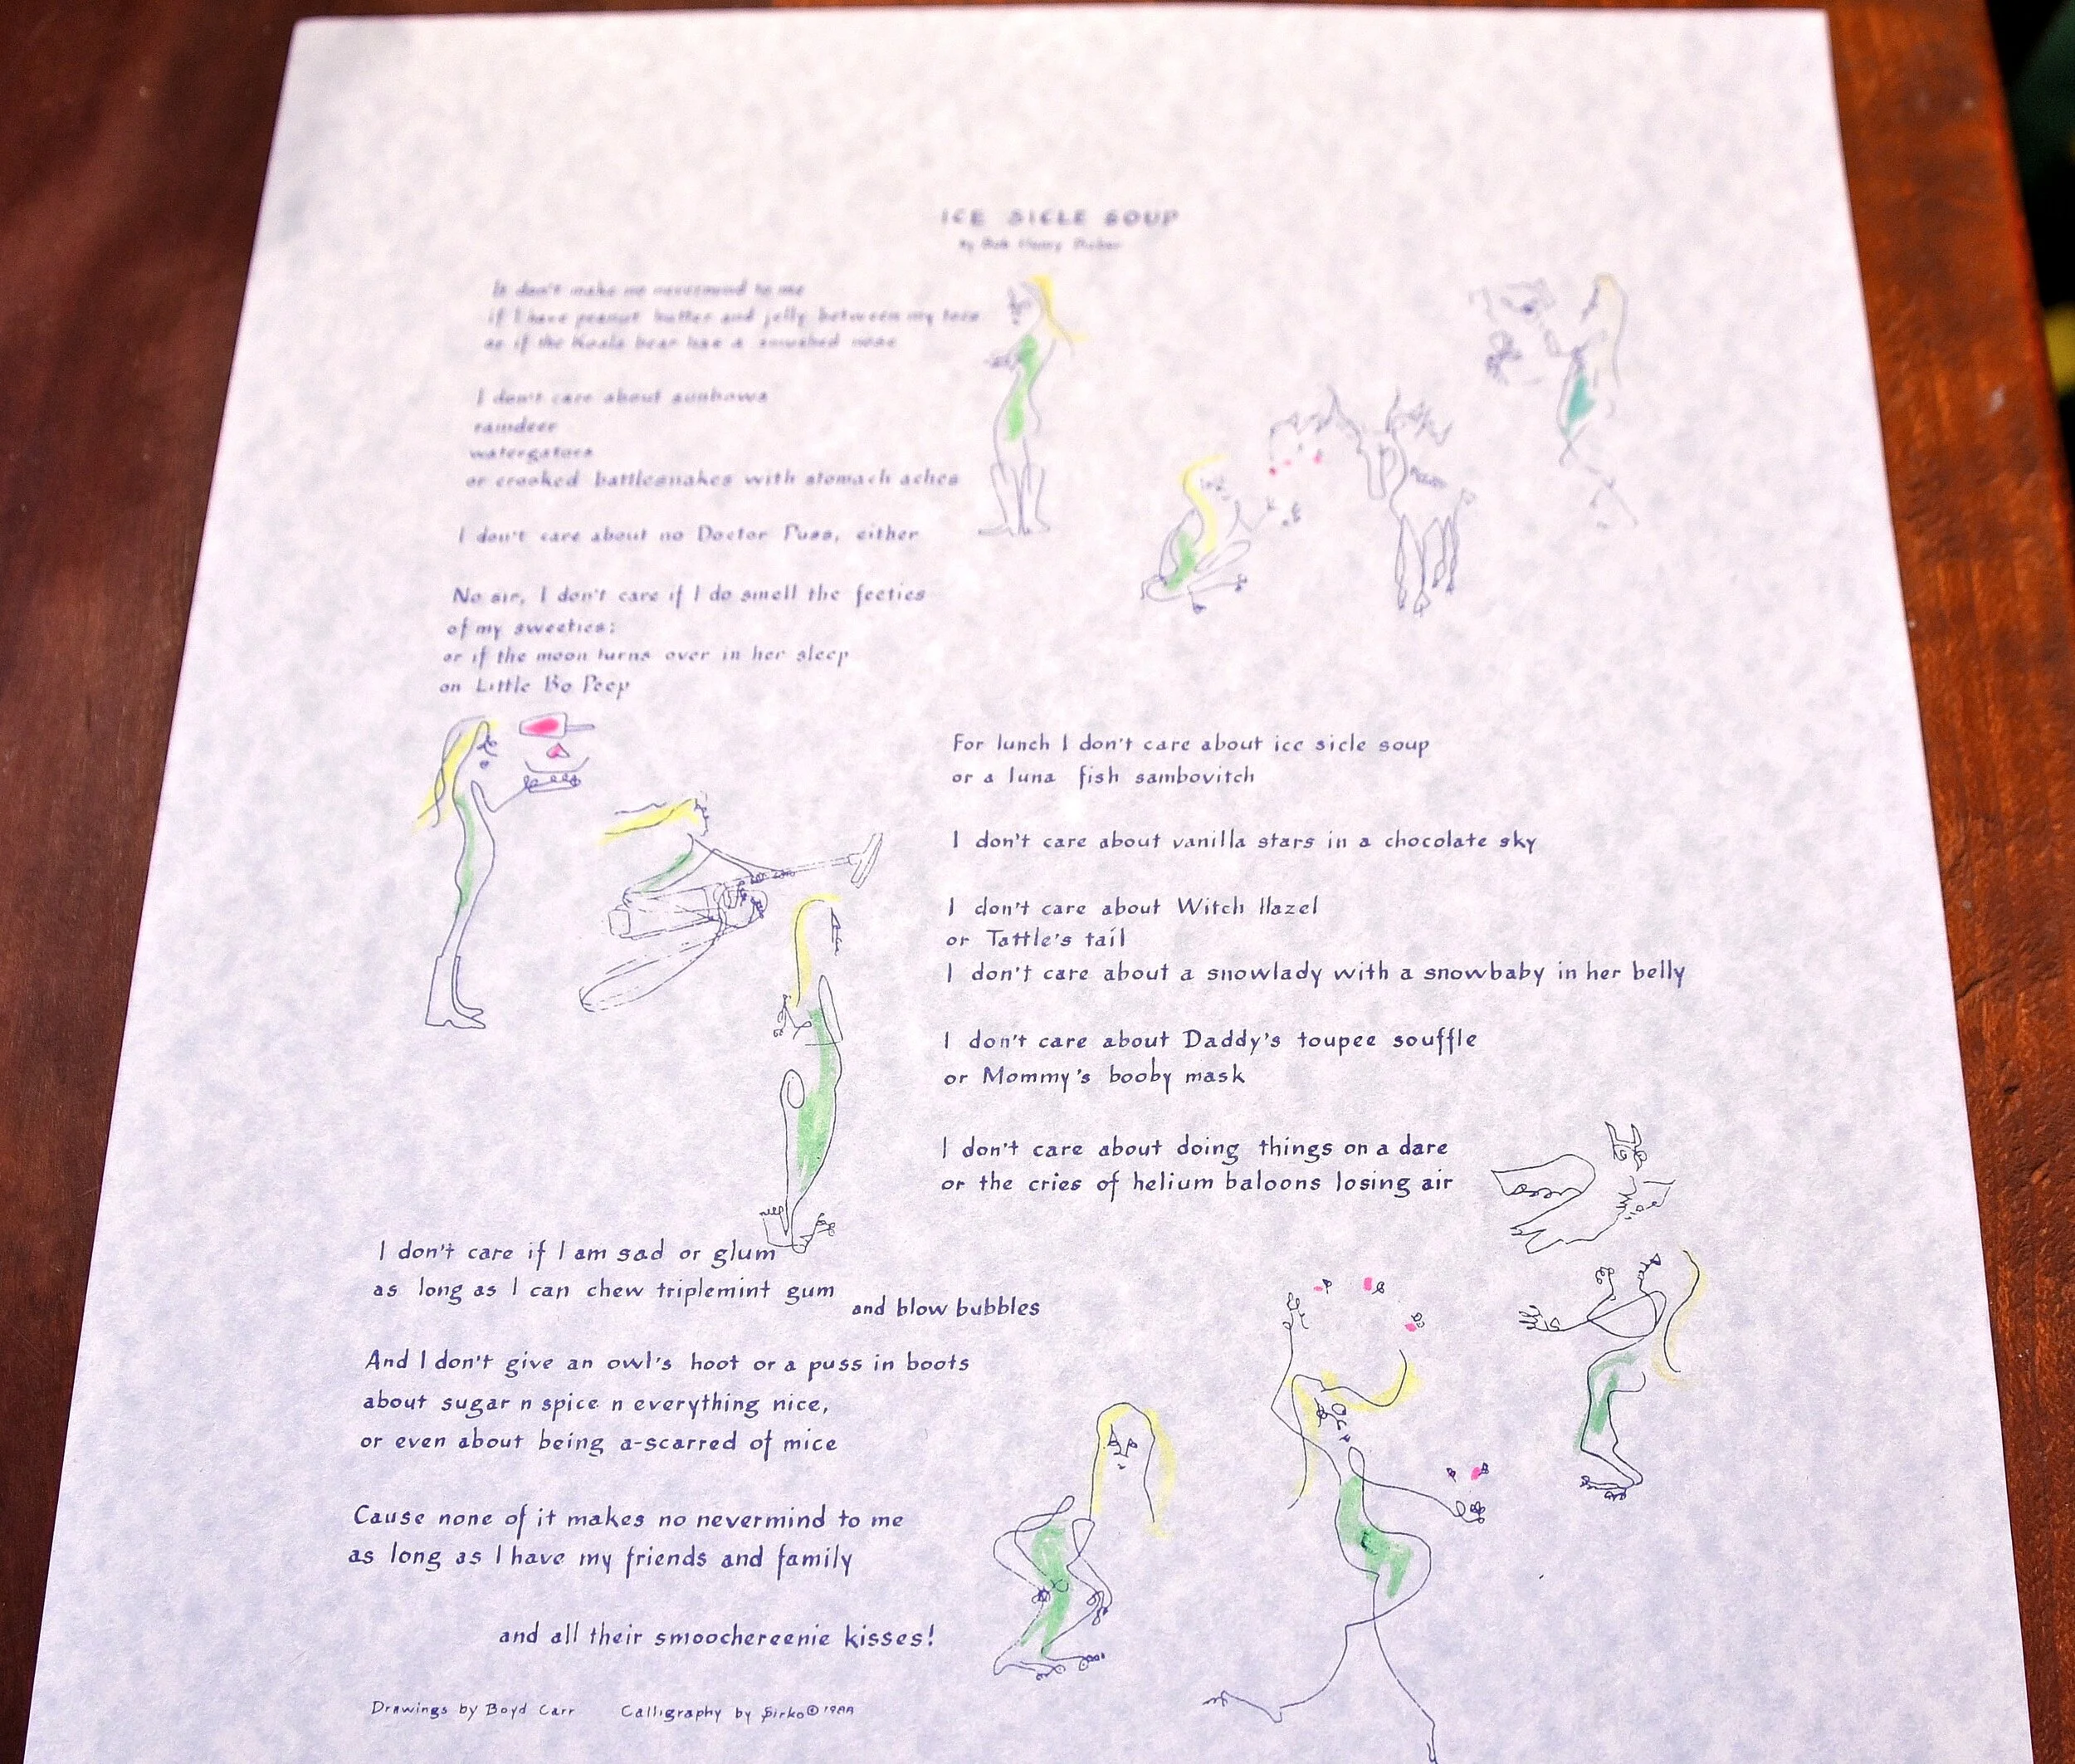 ICE SICLE SOUP
by Bob Henry
It don't make no nevermind to me
if I have peanut butter and jelly between my toes
or if the Koala bear has a smushed nose
I don't care about sunbows
raindeer
watergators
or crooked battlesnakes with stomach aches
I don't care about no Doctor Puss, either
No sir, I don't care if I do smell the feeties
of my sweeties;
or if the moon turns over in her sleep
on Little Bo Peep
For lunch I don't care about ice sicle soup
or a luna fish sambovitch
I don't care about vanilla stars in a chocolate sky
I don't care about Witch Hazel
or Tattle's tail
I don't care about a snowlady with a snowbaby in her belly
I don't care about Daddy's toupee souffle
or Mommy's booby mask
I don't care about doing things on a dare
or the cries of helium baloons losing air
I don't care if I am sad or glum
as long as I can chew triplemint gum
and blow bubbles
And I don't give an owl's hoot or a puss in boots
about sugar n spice n everything nice,
or even about being a-scarred of mice
Cause none of it makes no nevermind to me
as long as I have my friends and family
and all their smoochereenie kisses!
Drawings by Boyd Carr Calligraphy by Sirko ©